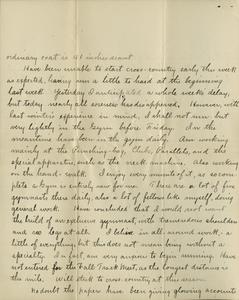 ordinary coat is 41 inches scant
Have been unable to start cross-country early this week
as expected, having run a little to hard at the beginning
last week. Yesterday I anticipated a whole weeks delay,
but today nearly all soreness has disappeared. However, with
last winter's experience in mind, I shall not run but
very lightly in the Gym before Friday. In the
meantime have been in the gym daily. Am working
mainly at the Punching bag, Clubs, Parallels, and the
special apparatus, such as the neck machine. Also working
on the hand-walk. I enjoy every minute of it, as so com-
plete a Gym is entirely new for me. There are a lot of fine
gymnasts there daily, also a lot of fellows like myself, doing
general work. Have concluded that I would never like
the build of an exclusive gymnast, with tremendous shoulders
and no legs at all. I believe in all-around work, a
little of everything, but this does not mean being without a
specialty. In fact, am very anxious to begin running. Have
not entered for the Fall Track Meet, as the longest distance is
the mile. Will stick to cross-country at this season.
No doubt the papers have been giving glowing accounts